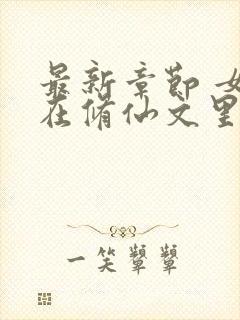 最新章节 女
在脩仙文里
一笑颦颦